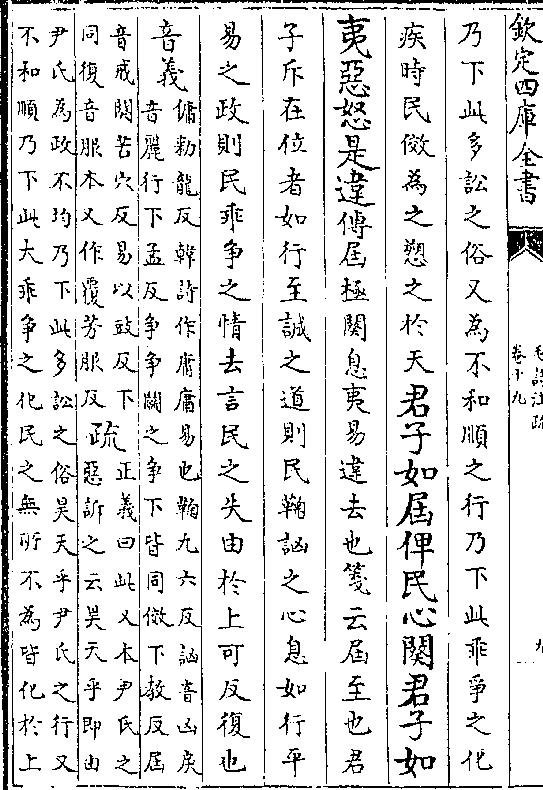 欽定四庫全書
毛詩注疏
卷十九
九
乃下此多訟之俗又為不和順之行乃下此乖爭之化
疾時民傚為之愬之於天君子如屆俾民心闋君子如
夷惡怒是違傳屆極闋息夷易違去也箋云屆至也君
子斥在位者如行至誠之道則民鞠訩之心息如行平
易之政則民乖爭之情去言民之失由於上可反復也
音義傭勑龍反韓詩作庸庸易也鞠九六反訩音凶戾
音麗行下孟反爭爭鬪之爭下皆同傚下教反屆
音戒闋苦穴反易以豉反下
同復音服本又作覆芳服反疏正義曰此又本尹氏之
惡訴之云昊天乎即由
尹氏為政不均乃下此多訟之俗昊天乎尹氏之行又
不和順乃下此大乖爭之化民之無所不為皆化於上